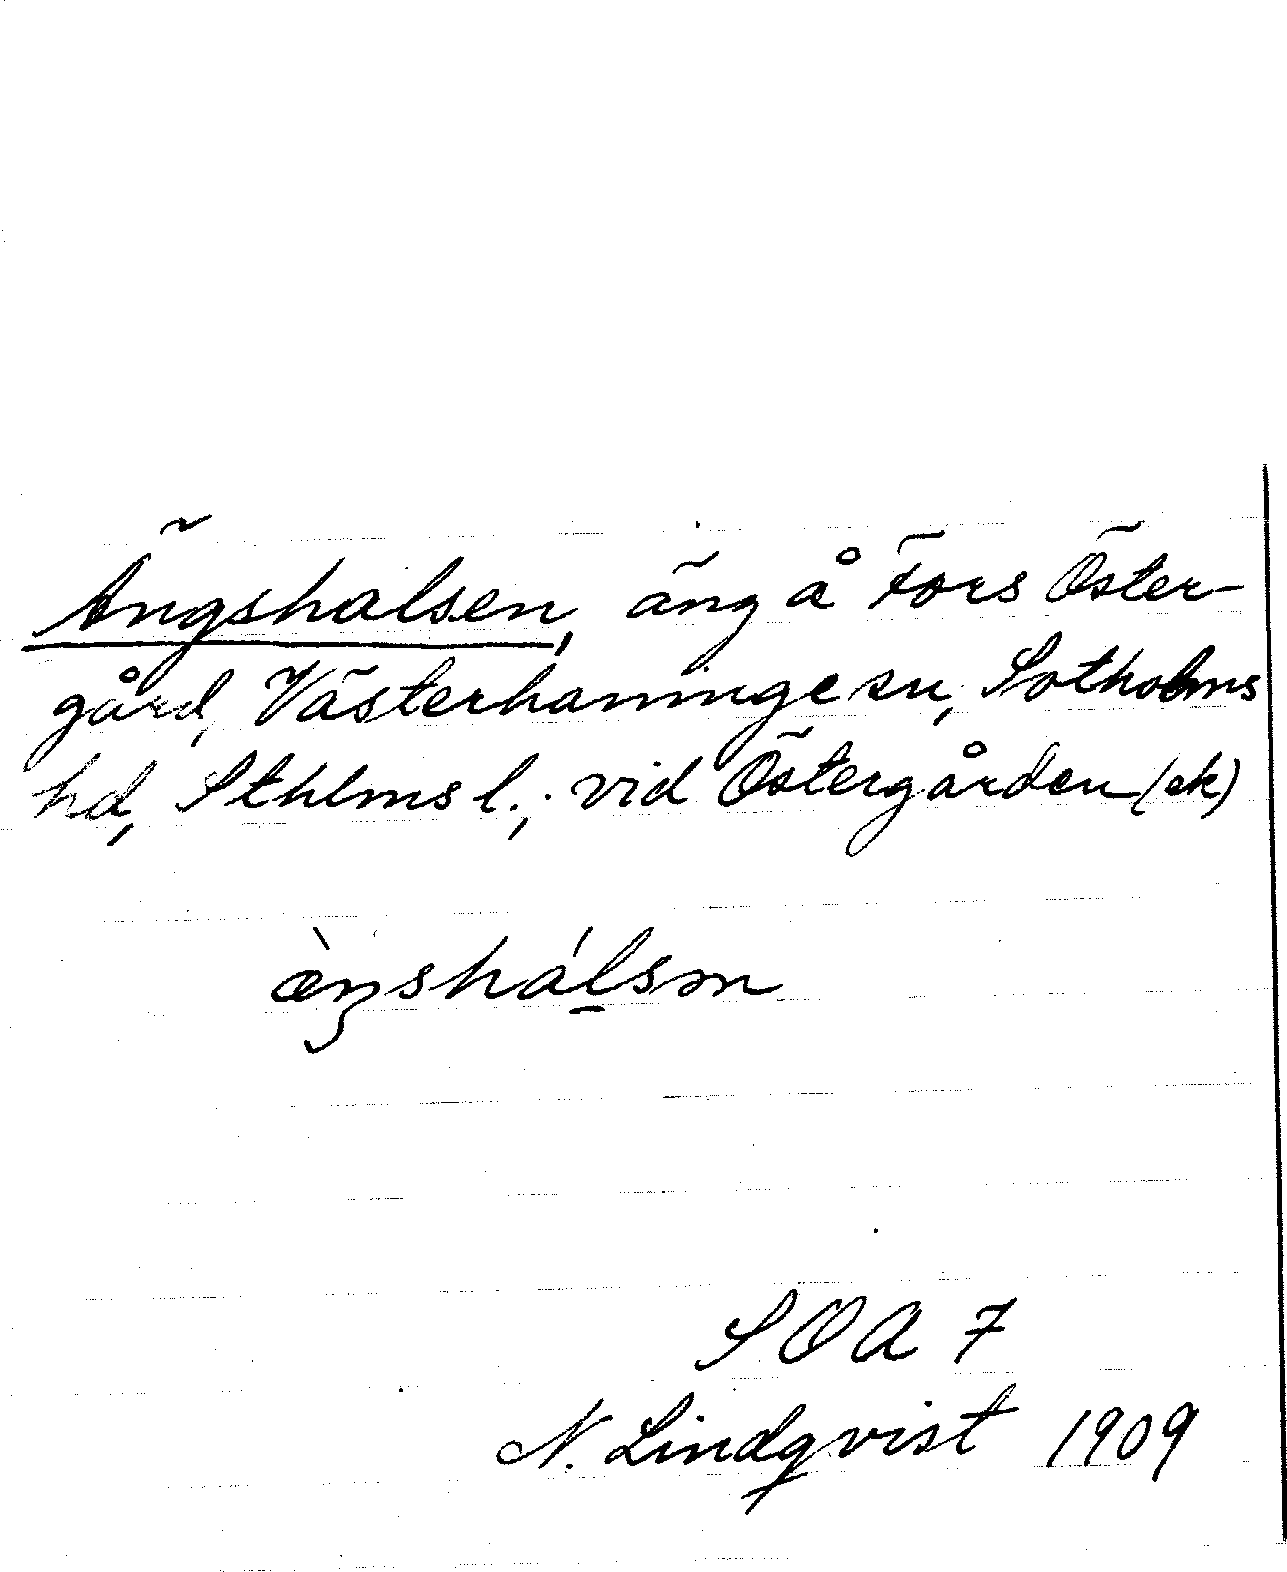 Ängshalsen, äng å Fors Öster-
gård, Västerhaninge sn, Sotholms
hd, Sthlms l.; vid Östergården (ek)
æ̀ŋshálsən
SOA 7
N. Lindqvist 1909